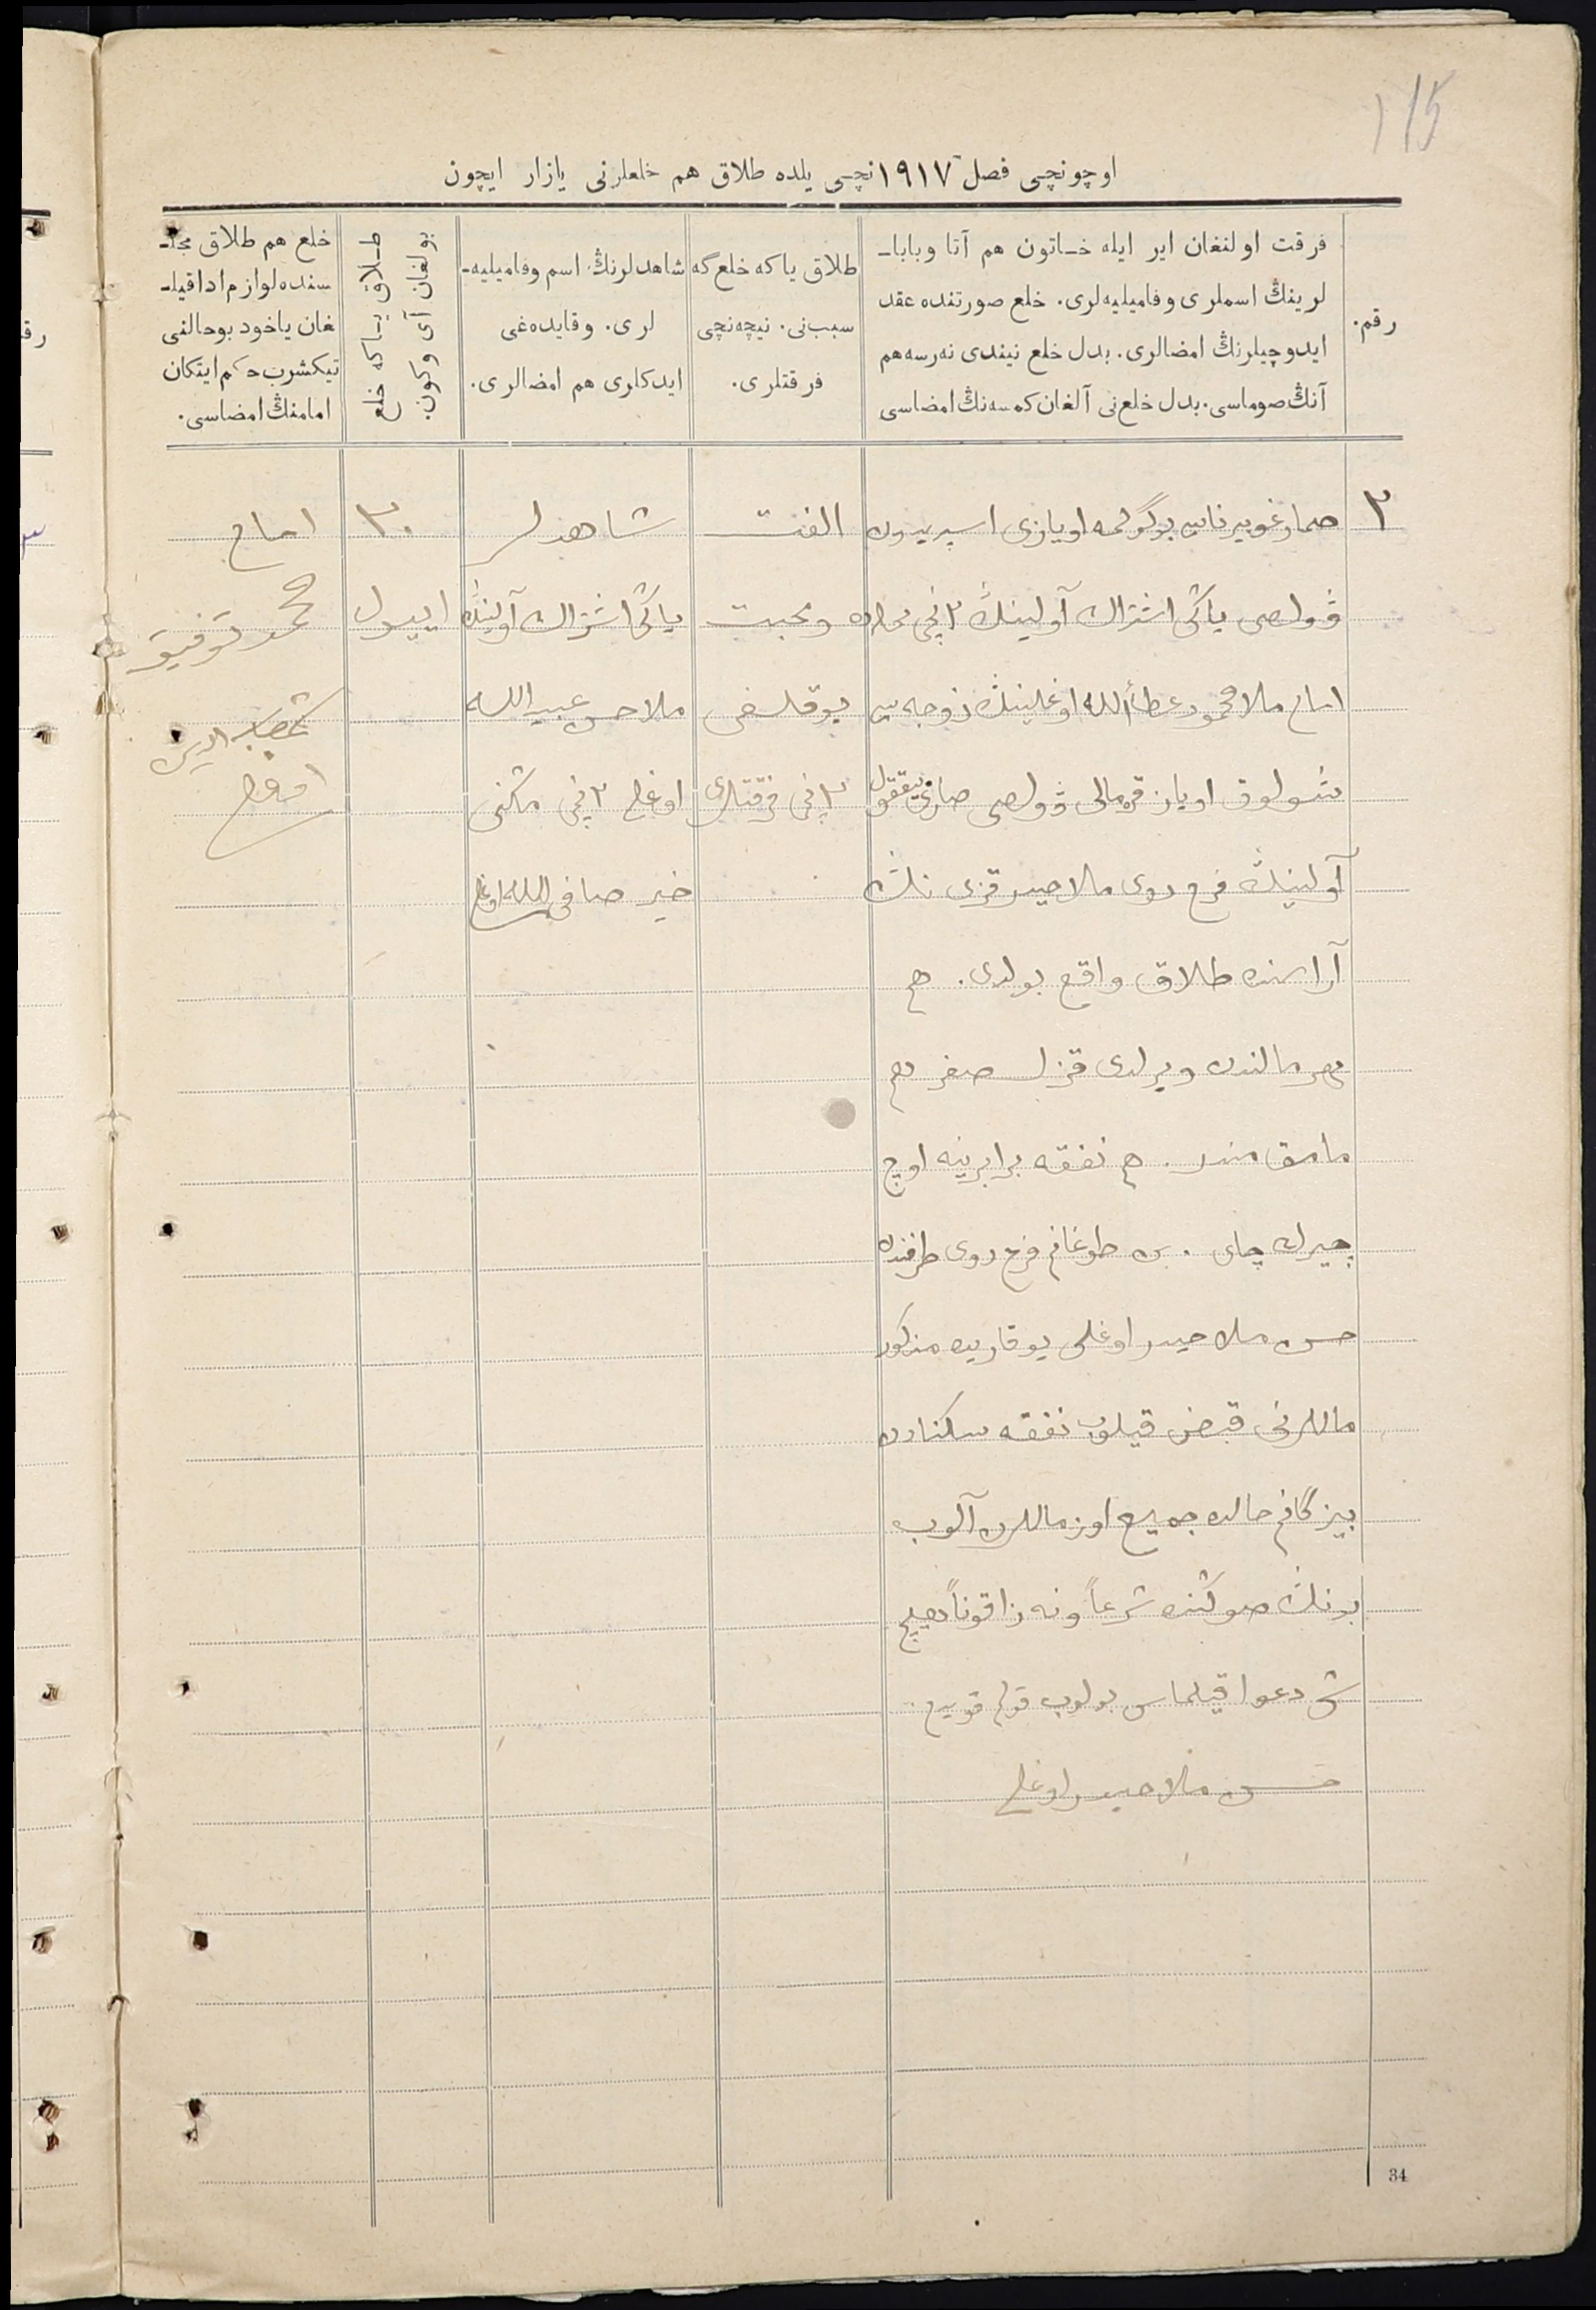 115
اوچونچی فصل ١٩١٧نچی یلده طلاق هم خلعلرنی یازار ایچون
رقم.
فرقت اولنغان ایر ایله خاتون هم آتا وبابا-
لرینڭ اسملری وفامیلیه‌لری. خلع صورتنده عقد
ایدوچیلرنڭ امضالری. بدل خلع نیندی نه‌رسه هم
آنڭ صوماسی. بدل خلع‌نی آلغان کمسه‌نڭ امضاسی
طلاق یاکه خلع‌گه
سبب‌نی. نیچه‌نچی
فرقتلری.
شاهدلرنڭ اسم وفامیلیه-
لری. وقایده‌غی
ایدکلری هم امضالری.
طلاق یاکه خلع
بولغان آی وکون.
خلع هم طلاق مجلـ-
سنده لوازم ادا قیلـ-
غان یاخود بوحالنی
تیکشرب حکم ایتکان
امامنڭ امضاسی.
٣
صمار غوبیرناسی بوگولمه اویازی اسپریدون
ڤولصی یاڭی اشتراك آولینڭ ٢نچی محله‌ده
امام ملا محمود عطاءالله اوغلینڭ زوجه‌سی
آولینڭ فرح روی ملا حیدر قزی نڭ
آراسنده طلاق واقع بولدی. هم
مهر مالندن ویرلدی قزل صفر هم
مامق مندر. هم نفقه برابرینه اوچ
چیرك چای. بن طوغانم فرح روی طرفندن
حسن ملا حیدر اوغلی یوقاریده مذکور
ماللرنی قبض قیلوب نفقه سکنادن
بیزگانم حالده جمیع اوز ماللرن آلوب
بونڭ صوڭنده شرعاً ونه زاقوناً هیچ
دعوا قیلماس بولوب قولم قویدم
حسن ملا حیدر اوغلی
الفت
ومحبت
یوقلغی
٢نچی فرقتلری
شاهدلر
یاڭی اشتراك آولینڭ
ملا حسن عبیدالله
اوغلی ٢نچی
خیر صافی الله اوغلی
٣٠
اییول
امام
محمد توفیق
34